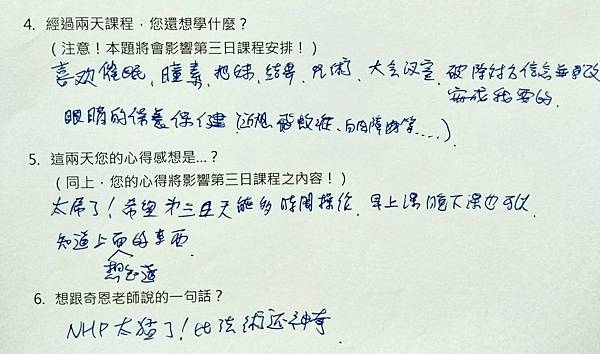 4. 經過兩天課程，您還想學什麼？
（注意！本題將會影響第三日課程安排！）
喜欢催眠、瞳素、把妹、結界、咒術、大会议室、破除对方信念並更改
容成我要的.
眼睛的保養保健（近視、飛蚊症、白內障等....）
5. 這兩天您的心得感想是…？
（同上，您的心得將影響第三日課程之內容！）
太屌了！希望第三日天能多時間操作、早上課晚下課也可以
知道上面的東西
想知道
6. 想跟奇恩老師說的一句話？
NHP太猛了！比法術还神奇